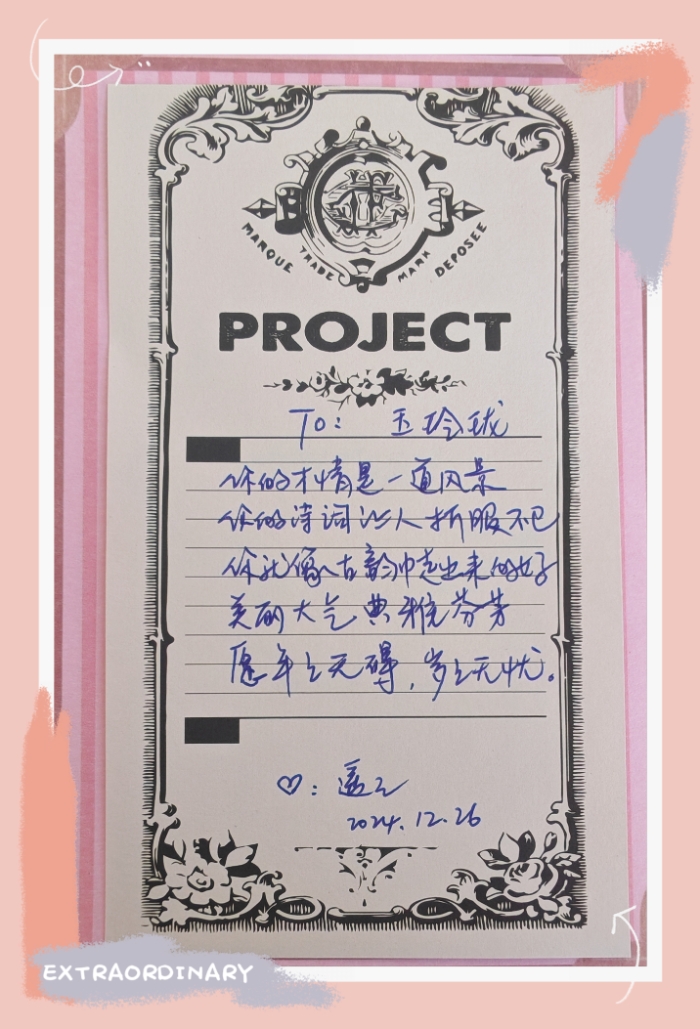 MARQUE TRADE MARK DEPOSEE
PROJECT
To: 玉玲珑
你的才情是一道风景
你的诗词让人折服不已
你就像古韵中走出来的女子
美丽大气典雅芬芳
愿年年无碍，岁岁无忧。
♡:遥
2024.12.26
EXTRAORDINARY